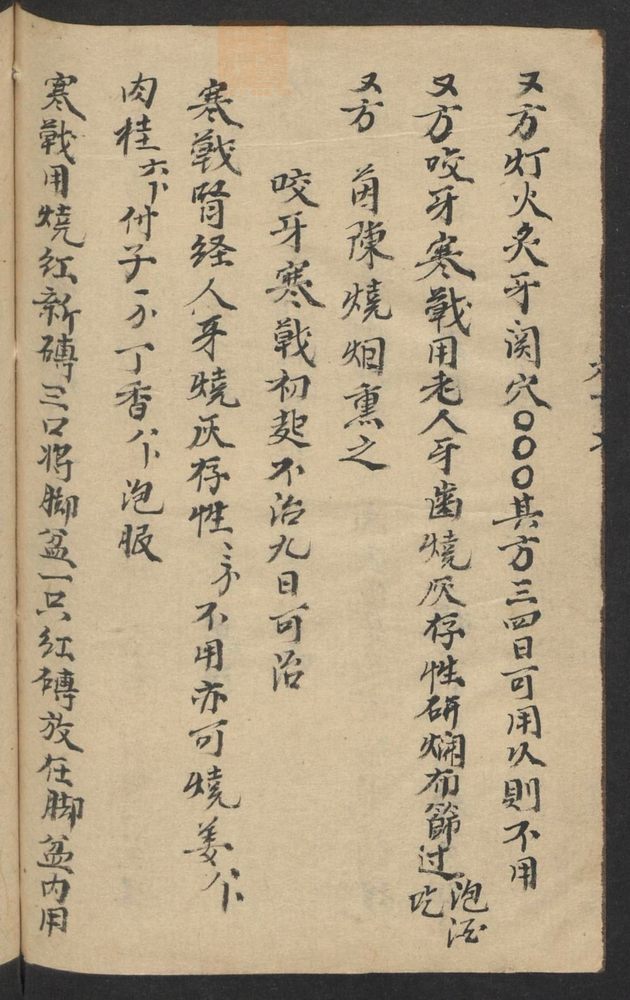 又方灯火炙牙関穴○○○其方三四日可用久則不用
又方咬牙寒戰用老人牙齒燒灰存性研爛布篩过泡酒吃
又方 茵陳燒烟熏之
咬牙寒戰初起不治九日可治
寒戰腎経人牙燒灰存性三分不用亦可燒姜八卜
肉桂六卜付子一分丁香八卜泡服
寒戰用燒红新磚三口将脚盆一只红磚放在脚盆内用